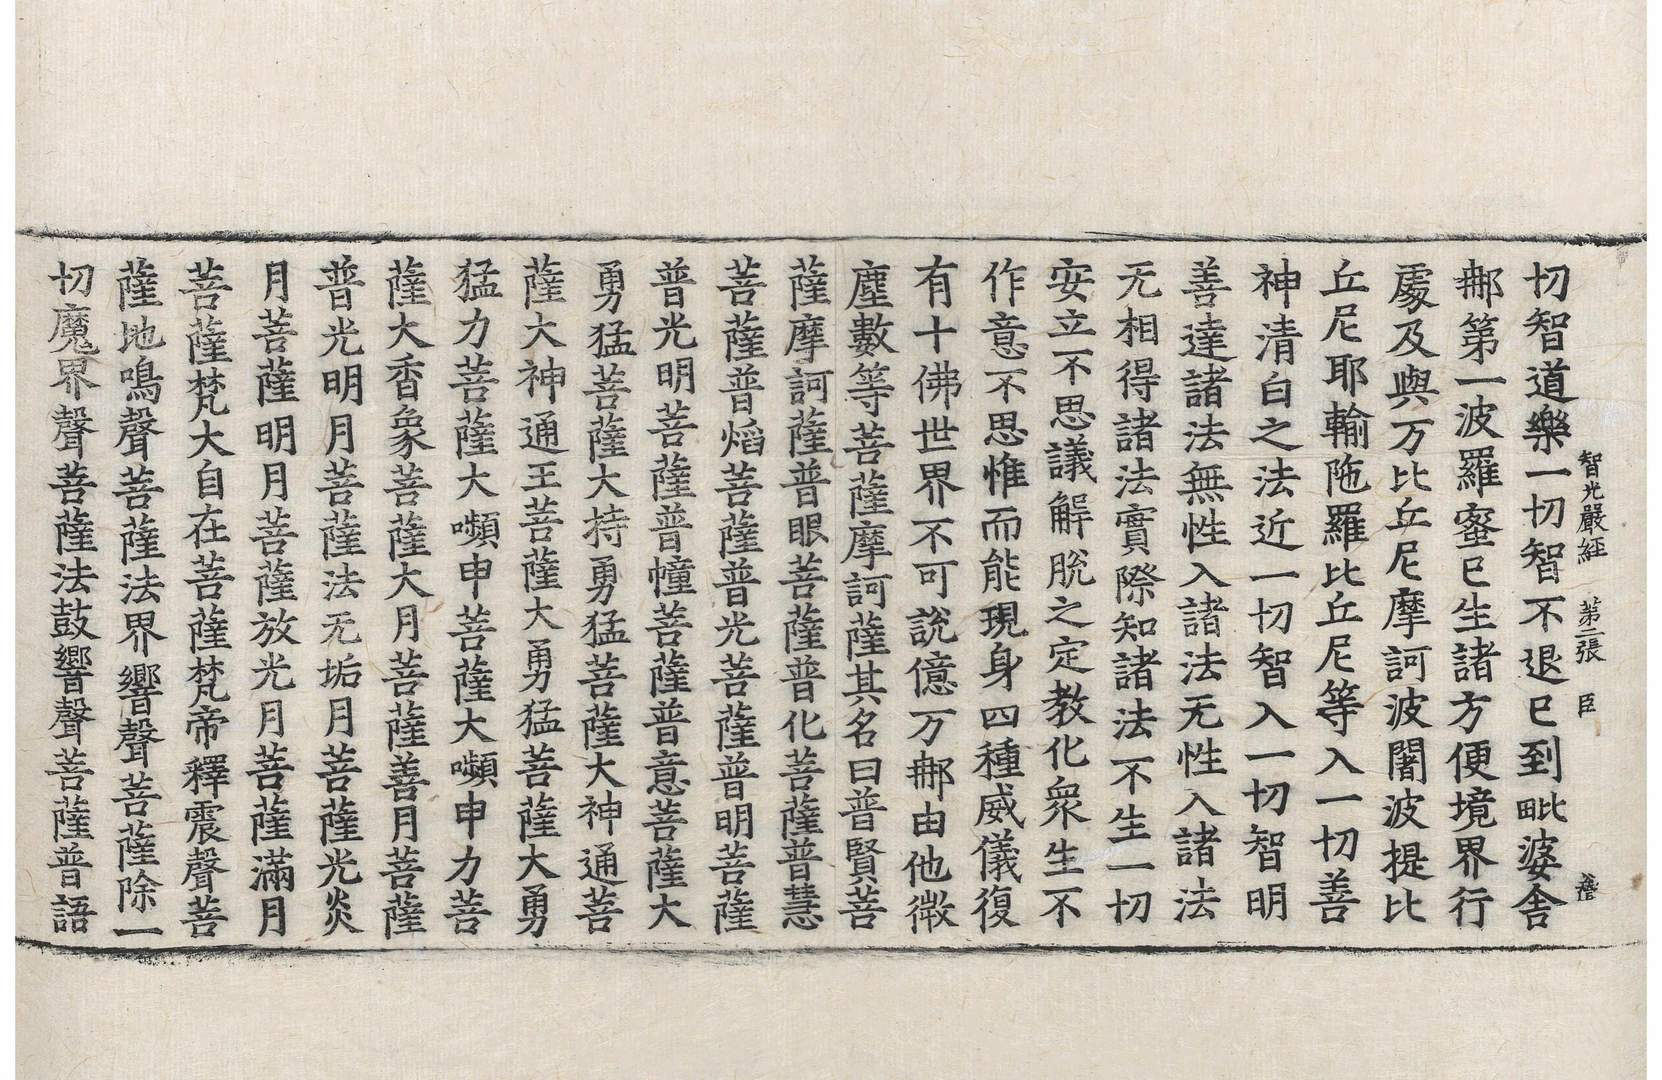 智光嚴經 第二張 臣
切智道樂一切智不退已到毗婆舍
𨚗第一波羅蜜已生諸方便境界行
處及與万比丘尼摩訶波闍波提比
丘尼耶輸陁羅比丘尼等入一切善
神清白之法近一切智入一切智明
善達諸法無性入諸法无性入諸法
无相得諸法實際知諸法不生一切
安立不思議解脫之定教化衆生不
作意不思惟而能現身四種威儀復
有十佛世界不可說億万𨚗由他微
塵數等菩薩摩訶薩其名曰普賢菩
薩摩訶薩普眼菩薩普化菩薩普慧
菩薩普焰菩薩普光菩薩普明菩薩
普光明菩薩普幢菩薩普意菩薩大
勇猛菩薩大持勇猛菩薩大神通菩
薩大神通王菩薩大勇猛菩薩大勇
猛力菩薩大嚬申菩薩大嚬申力菩
薩大香象菩薩大月菩薩善月菩薩
普光明月菩薩法无垢月菩薩光炎
月菩薩明月菩薩放光月菩薩滿月
菩薩梵大自在菩薩梵帝釋震聲菩
薩地鳴聲菩薩法界響聲菩薩除一
切魔界聲菩薩法鼓響聲菩薩普語